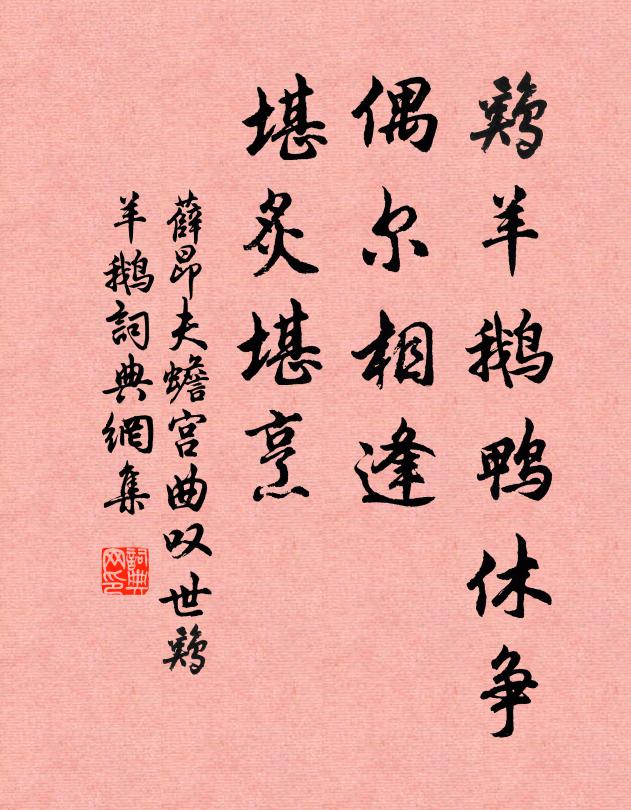 鸡羊鹅鸭休争
偶尔相逢
堪炙堪烹
薛昂夫蟾宫曲叹世鸡
羊鹅詞典網集
詞典網印